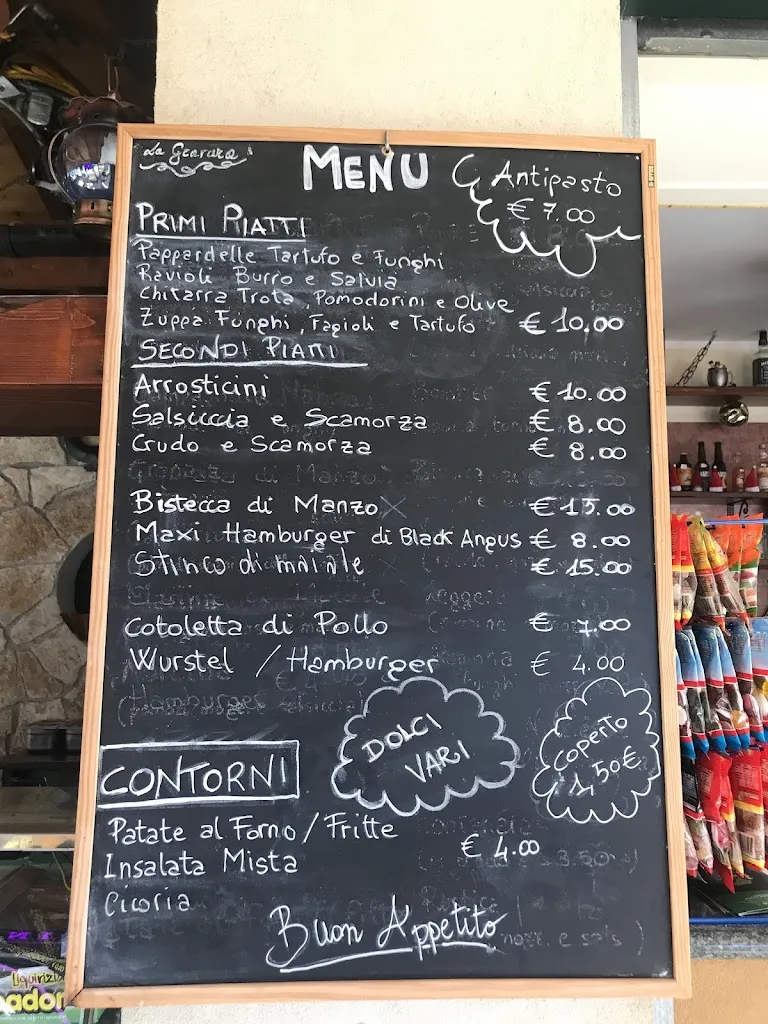 La
MENU
Antipasto
€ 7.00
PRIMI PIATTI
Pappardelle Tartufo e Funghi
Ravioli Burro e Salvia
Chitarra Trota, Pomodorini e Olive
Zuppa Funghi, Fagioli e Tartufo € 10,00
SECONDI PIATTI
Arrosticini € 10.00
Salsiccia e Scamorza € 8.00
Crudo e Scamorza € 8.00
Bistecca di Manzo € 15.00
Maxi Hamburger di Black Angus € 8.00
Stinco di maiale € 15.00
Cotoletta di Pollo € 7.00
Wurstel / Hamburger € 4.00
DOLCI
VARI
Coperto
1,50€
CONTORNI
Patate al Forno/Fritte
€ 4.00
Insalata Mista
Cicoria
Buon Appetito